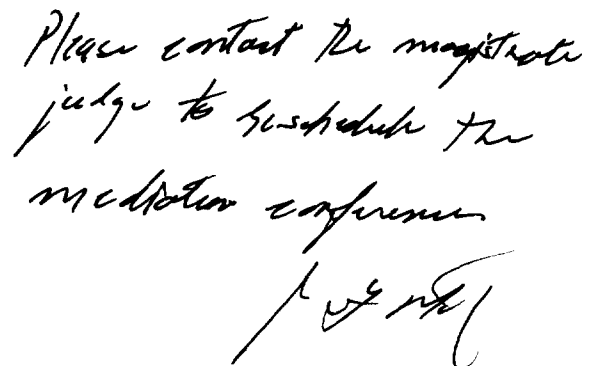 Please contact the magistrate
judge to reschedule the
mediation conference